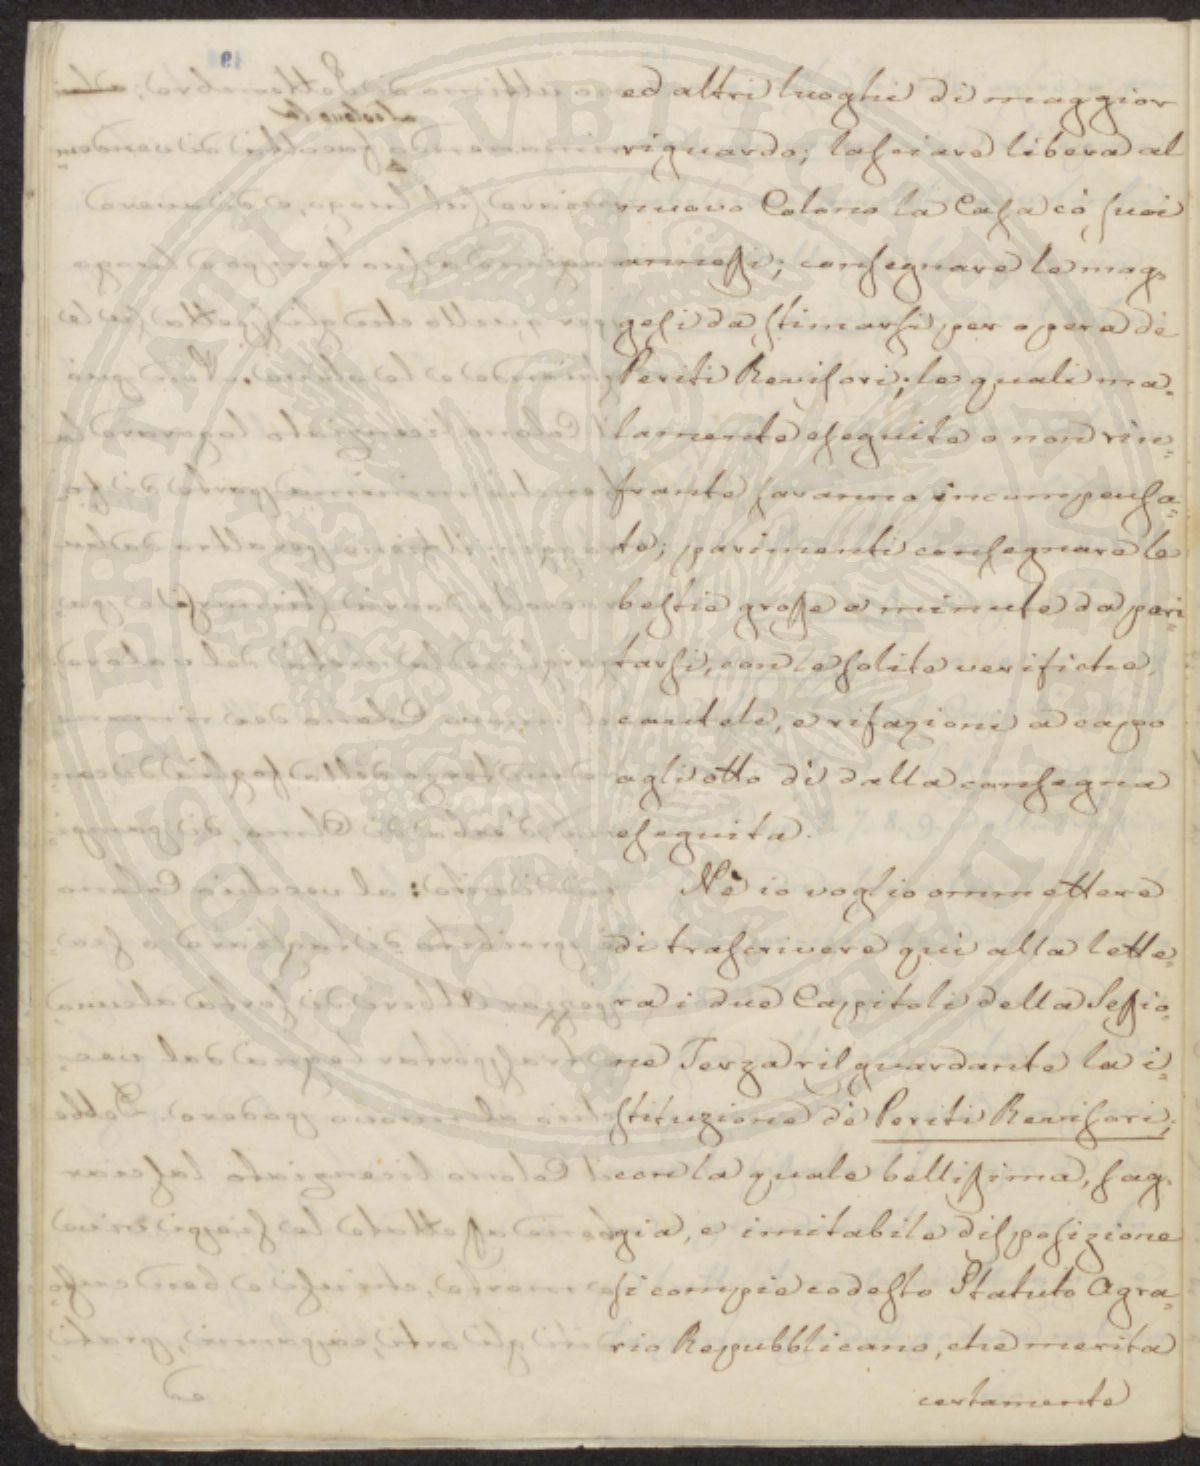 ed altri luoghi di maggior
riguardo; lasciare libera al
nuovo Colono la Casa có suoi
annessi; consegnare le mag=
gesi da stimarsi per opera di
Periti Revisori; le quali ma=
lamente eseguite o non rin=
frante saranno incompensa=
te; parimenti consegnare le
bestie grosse e minute da peri=
tarsi, con le solite verifiche,
cautele, e rifazioni a capo
agli otto dì dalla consegna
eseguita.
Nè io voglio ommettere
di trascrivere qui alla lette=
ra i due Capitoli della Sessio=
ne Terza risguardante la i=
stituzione dé Periti Revisori;
con la quale bellissima, sag=
gia, e imitabile disposizione
si compie codesto Statuto Agra=
rio Repubblicano, che merita
certamente